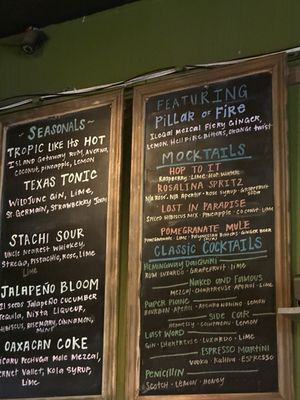 ~ SEASONALS ~
TROPIC LIKE ITS HOT
ISLAND GETAWAY RUM, AVERNA,
COCONUT, PINEAPPLE, LEMON
TEXAS TONIC
WILDJUNE GIN, LIME,
ST. GERMAIN, STRAWBERRY
STACHI SOUR
UNCLE NEAREST WHISKEY,
STREGA, PISTACHIO, ROSE, LIME
LIME
JALAPEÑO BLOOM
21 SEEDS JALAPEÑO CUCUMBER
TEQUILA, NIXTA LIQUEUR,
HIBISCUS, ROSEMARY, CINNAMON,
MINT
OAXACAN COKE
PECHUGA MOLE MEZCAL,
FERNET VALLET, KOLA SYRUP,
LIME
FEATURING
PILLAR OF FIRE
ILEGAL MEZCAL FIERY GINGER,
LEMON, HELL FIRE BITTERS, ORANGE TWIST
MOCKTAILS
HOP TO IT
RASPBERRY · LIME · HOP WATER
ROSALINA SPRITZ
LOST IN PARADISE
SPICED HIBISCUS MIX · PINEAPPLE · COCONUT · LIME
POMEGRANATE MULE
CLASSIC COCKTAILS
HEMINGWAY DAIQUIRI
RUM · LUXARDO · GRAPEFRUIT · LIME
NAKED AND FAMOUS
MEZCAL · CHARTREUSE · APEROL · LIME
PAPER PLANE
BOURBON · APEROL · AMARO NONINO · LEMON
SIDE CAR
HENNESSY · COINTREAU · LEMON
LAST WORD
GIN · CHARTREUSE · LUXARDO · LIME
ESPRESSO MARTINI
VODKA · KAHLUA · ESPRESSO
PENICILLIN
SCOTCH · LEMON · HONEY